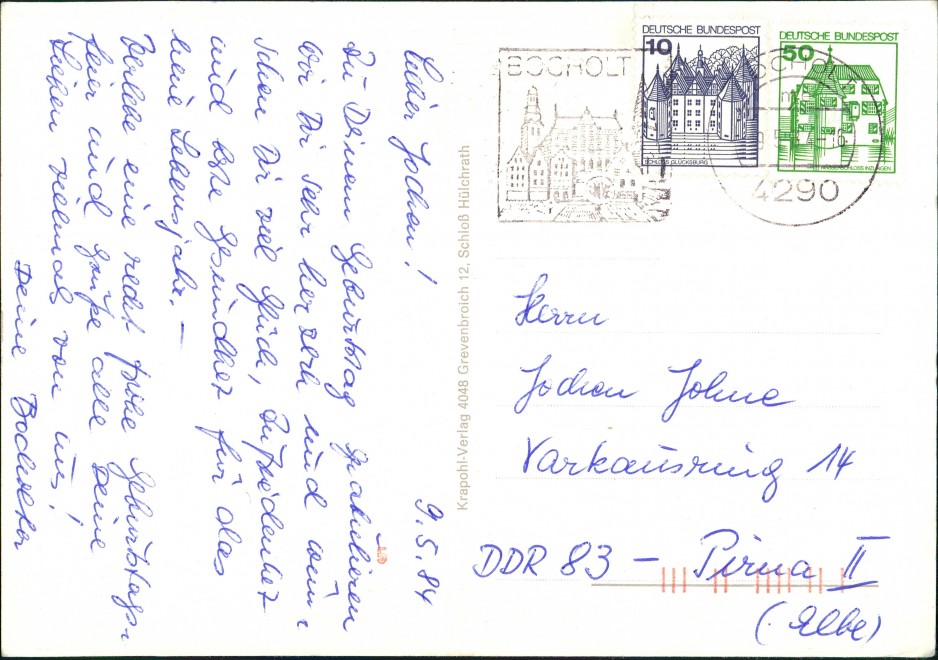 Lieber Jochen!
9.5.84
Zu Deinem Geburtstag gratulieren
wir Dir sehr herzlich und wün-
schen Dir viel Glück, Zufriedenheit
und beste Gesundheit für das
neue Lebensjahr. —
Verlebe eine recht frohe Geburtstags-
feier und grüße alle Deine
Lieben vielmals von uns!
Deine Bocholter
Krapohl-Verlag 4048 Grevenbroich 12, Schloß Hülchrath
BOCHOLT
DEUTSCHE BUNDESPOST
10
SCHLOSS GLÜCKSBURG
DEUTSCHE BUNDESPOST
50
WASSERSCHLOSS INZLINGEN
4290
Herrn
Jochen Johne
Varkausring 14
DDR 83 – Pirna II
(Elbe)